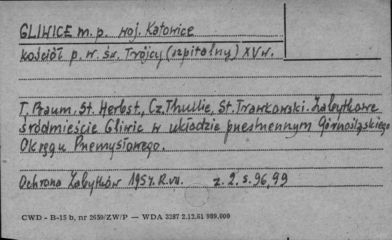 GLIWICE m.p. woj. Katowice
kościół p.w. św. Trójcy (szpitalny) XV w.
T. Braum. St. Herbst, Cz. Thullie, St. Trawkowski. Zabytkowe
śródmieście Gliwic w układzie przestrzennym Górnośląskiego
Okręgu Przemysłowego.
Ochrona Zabytków 1954. R. VII. z. 2. s. 96, 99
CWD - B-15 b, nr 2659/ZW/P — WDA 3287 2.12.61 989.000